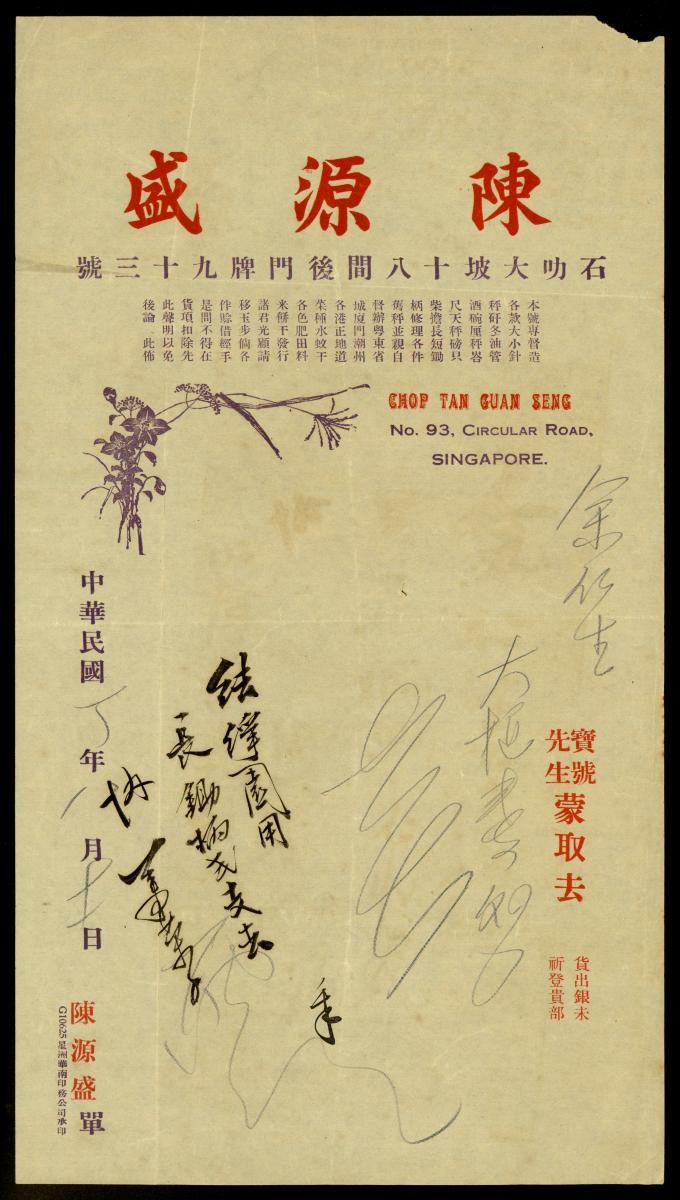 陳源盛
石叻大坡十八間後門牌九十三號
本號專督造
各款大小針
秤矸冬油管
酒碗厘秤
尺天秤磅只
柴擔長短鋤
柄修理各件
舊秤並親自
督辦粵東省
城厦門潮州
各港正地道
菜種水蚊干
各色肥田料
來餅干發行
諸君光顧請
移玉步倘各
伴賒借經手
是問不得在
貨項扣除先
此聲明以免
後論 此佈
CHOP TAN GUAN SENG
No. 93, CIRCULAR ROAD,
SINGAPORE.
余仁生
寶號
先生
蒙取去
貨出銀未
祈登貴部
園用
長鋤柄弍支去
中華民國 年 月 日
陳源盛單
G10625星洲華南印務公司承印